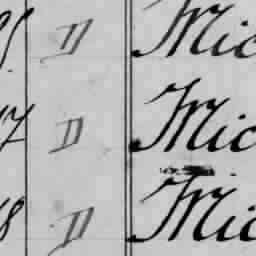 D Mic
7 D Mic
8 D Mic